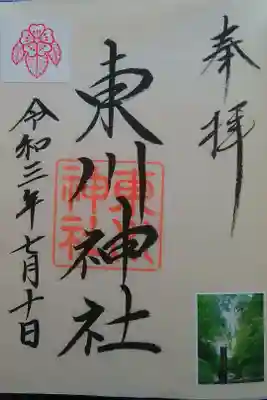 奉拝
東川神社
東川
神社
令和三年七月十日